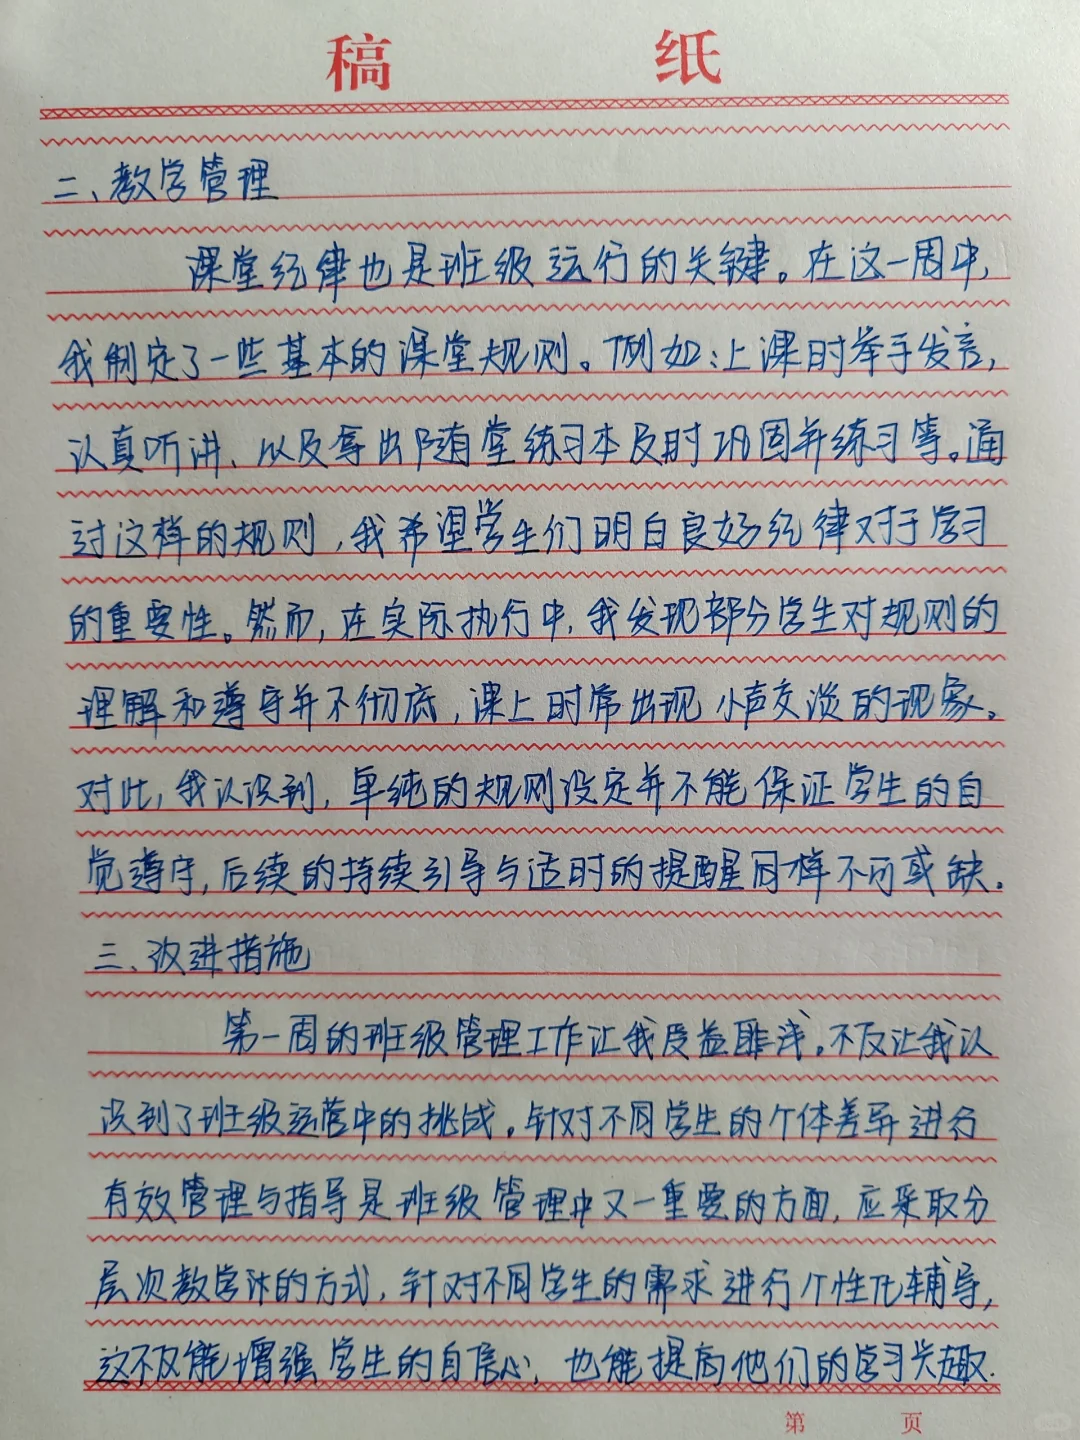 稿 纸
二、教学管理
课堂纪律也是班级运行的关键。在这一周中,
我制定了一些基本的课堂规则。例如:上课时举手发言,
认真听讲、以及导出随堂练习本及时巩固并练习等。通
过这样的规则,我希望学生们明白良好纪律对于学习
的重要性。然而,在实际执行中,我发现部分学生对规则的
理解和遵守并不彻底,课上时常出现小声交谈的现象。
对此,我认识到,单纯的规则设定并不能保证学生的自
觉遵守,后续的持续引导与适时的提醒同样不可或缺。
三、改进措施
第一周的班级管理工作让我受益匪浅。不仅让我认
识到了班级运营中的挑战。针对不同学生的个体差异进行
有效管理与指导是班级管理中又一重要的方面,应采取分
层次教学法的方式,针对不同学生的需求进行个性化辅导,
这不仅能增强学生的自信心,也能提高他们的学习兴趣.
第 页